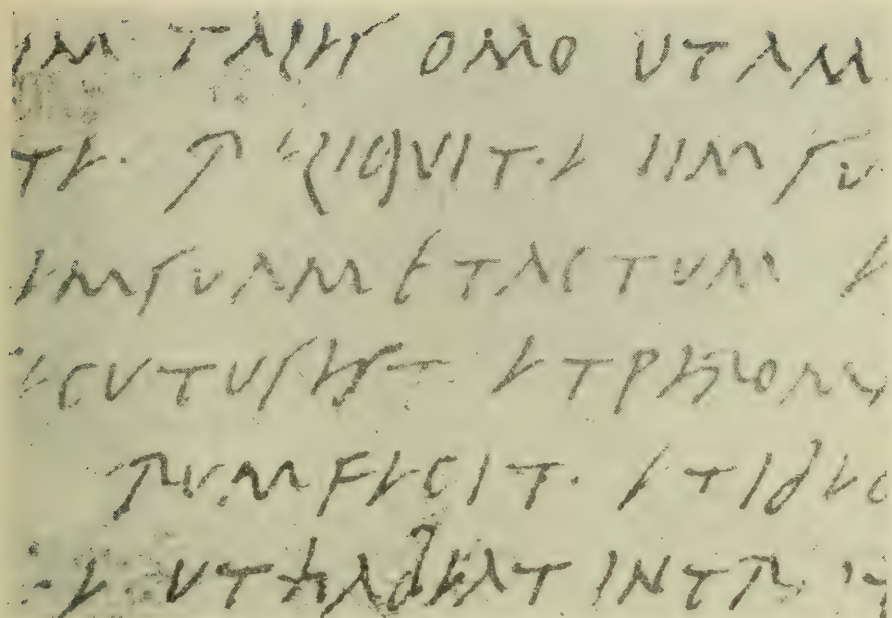 im tales omo utam
te. reliquit. enim su
em suam et actum e
ecutus est et per omn
rum fecit. et ideo
ut habeat intr